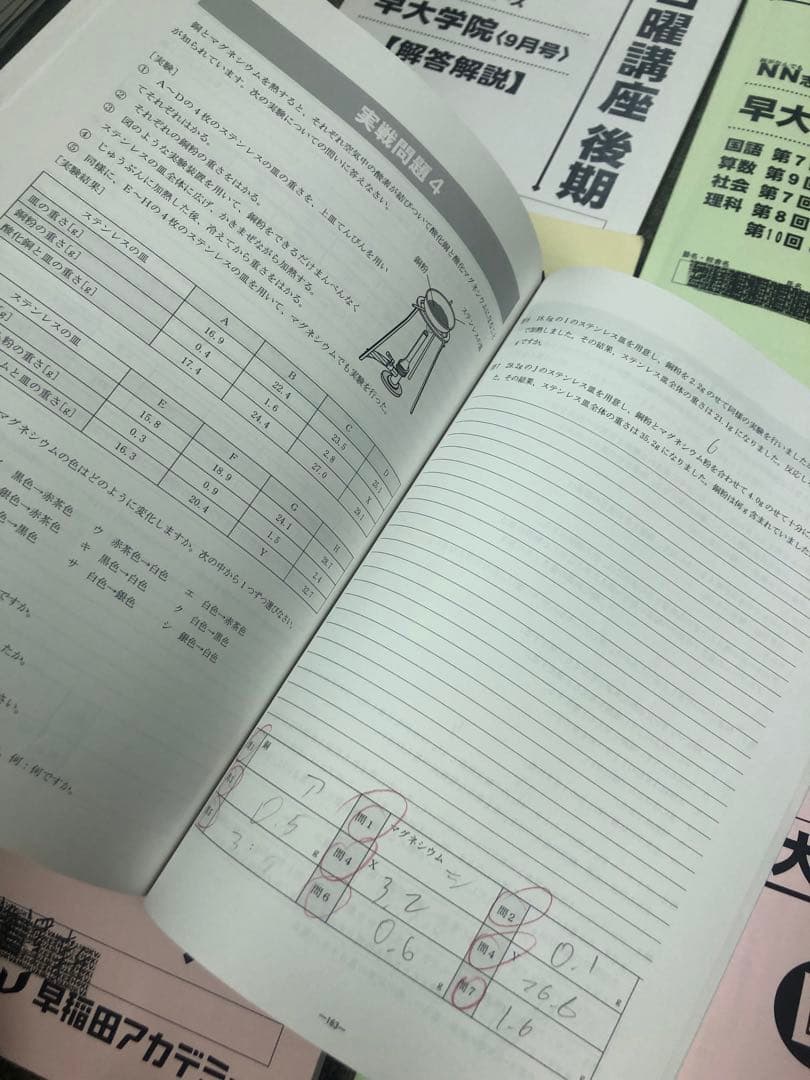 早大学院〈9月号〉
【解答解説】
日曜講座 後期
早大
国語 第7
算数 第9回
社会 第7回
理科 第8回
第10回
実戦問題4
銅とマグネシウムを熱すると、それぞれ空気中の酸素が結びついて酸化銅と酸化マグネシウムになること
が知られています。次の実験についての問いに答えなさい。
[実験]
① A~Dの4枚のステンレスの皿の重さを、上皿てんびんを用い
てそれぞれはかる。
② それぞれの銅粉の重さをはかる。
③ 図のような実験装置を用いて、銅粉をできるだけまんべんなく
ステンレスの皿全体に広げ、かきまぜながら加熱する。
④ じゅうぶんに加熱した後、冷えてから重さをはかる。
⑤ 同様に、E~Hの4枚のステンレスの皿を用いて、マグネシウムでも実験を行った。
銅粉
ステンレスの皿
[実験結果]
ステンレスの皿 A B C D
皿の重さ[g] 16.9 22.4 23.5
銅粉の重さ[g] 0.4 1.6 2.8 X
酸化銅と皿の重さ[g] 17.4 24.4 27.0 29.1
ステンレスの皿 E F G H
15.8 18.9 24.1 28.7
粉の重さ[g] 0.3 0.9 1.5 2.4
ムと皿の重さ[g] 16.3 20.4 Y 32.7
マグネシウムの色はどのように変化しますか。次の中から1つずつ選びなさい。
黒色→赤茶色 ウ 赤茶色→白色 エ 白色→赤茶色
銀色→赤茶色 キ 黒色→白色 ク 白色→黒色
→黒色 サ 白色→銀色 シ 銀色→白色
ですか。
たか。
さい。
、例:何ですか。
18.5gのIのステンレス皿を用意し、銅粉を2.2gのせて同様の実験を行いました
で加熱しました。その結果、ステンレス皿全体の重さは21.1gになりました。反応し
gですか。
問7 28.2gのJのステンレス皿を用意し、銅粉とマグネシウム粉を合わせて4.0gのせて十分に
た。その結果、ステンレス皿全体の重さは35.2gになりました。銅粉は何g含まれていました
6
銅 ア 問1 マグネシウム シ 問2 0.1 g
0.5 g 問4 X 3.2 問4 Y 26.6
問6 0.6 g 問7 1.6 g
—163—
早稲田アカデミ
大